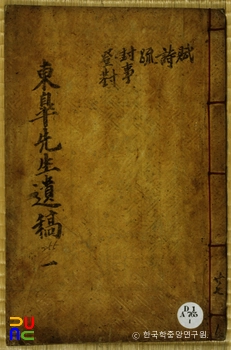 賦
詩
疏
封事
登對
東皐先生遺稿 一
D1
A765
1
ⓒ 한국학중앙연구원